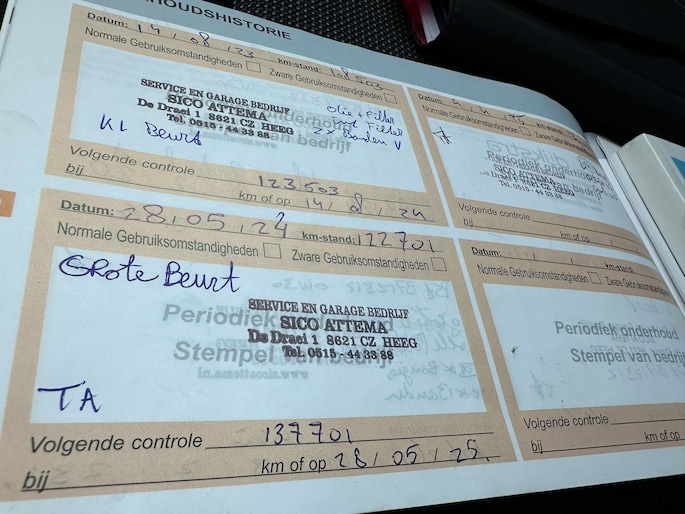 HOUDSHISTORIE
Datum: 14 / 08 / 23 km-stand: 18503
Normale Gebruiksomstandigheden Zware Gebruiksomstandigheden
SERVICE EN GARAGE BEDRIJF
SICO ATTEMA
De Draei 1 8621 CZ HEEG
Tel. 0515 - 44 33 88
Olie + Filter
Filter
2x Banden V
Kl Beurt
Volgende controle 123503
bij km of op 14 / 8 / 24
Datum: 28 / 05 / 24 km-stand: 122701
Normale Gebruiksomstandigheden Zware Gebruiksomstandigheden
GROTE Beurt
SERVICE EN GARAGE BEDRIJF
SICO ATTEMA
De Draei 1 8621 CZ HEEG
Tel. 0515 - 44 33 88
Periodiek onderhoud
Stempel van bedrijf
TA
Volgende controle 137701
bij km of op 28 / 05 / 25
Datum: km-stand:
Normale Gebruiksomstandigheden Zware
Periodiek onderhoud
SICO ATTEMA
Tel. 0515 - 44 33 88
Volgende controle
bij km of op
Datum: / / km-stand:
Normale Gebruiksomstandigheden Zware
Periodiek onderhoud
Stempel van bedrijf
Volgende controle
bij km of op